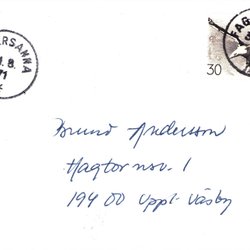 ERSANNA
1.8.
71
30
Andersson
Hagtornsv. 1
194 00 Uppl-Väsby